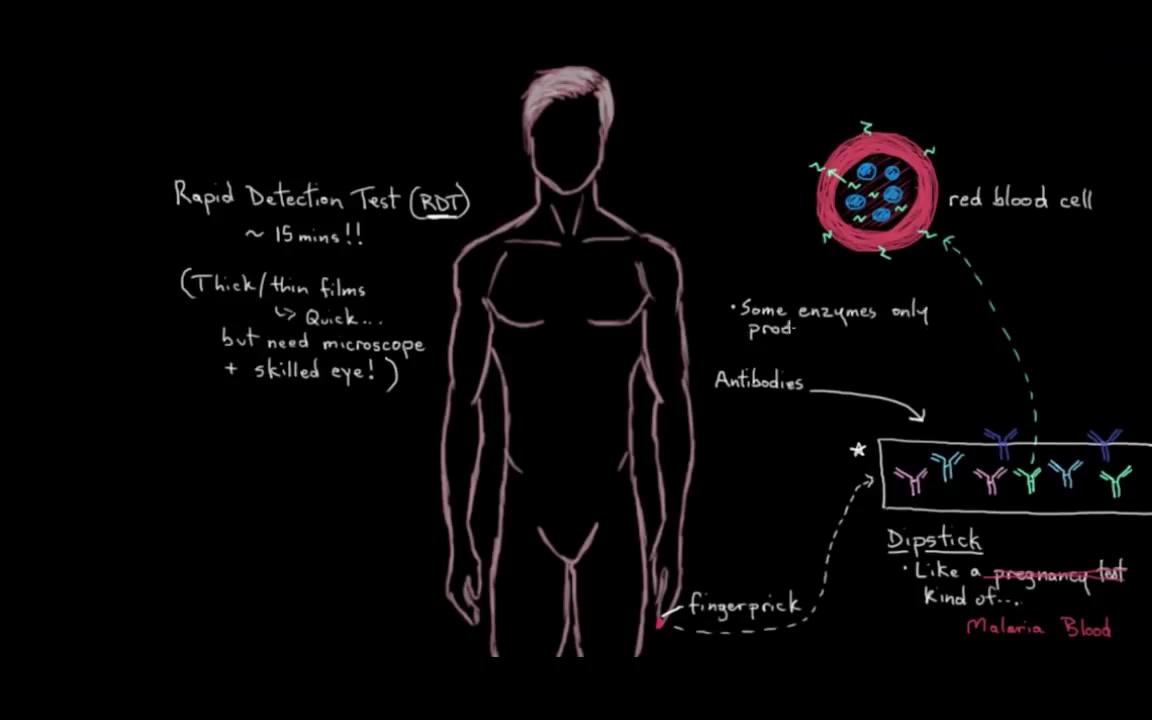 Rapid Detection Test (RDT)
~ 15 mins!!
(Thick/thin films
↳ Quick...
but need microscope
+ skilled eye!)
red blood cell
• Some enzymes only
prod-
Antibodies
*
Dipstick
• Like a pregnancy test
kind of....
Malaria Blood
fingerprick